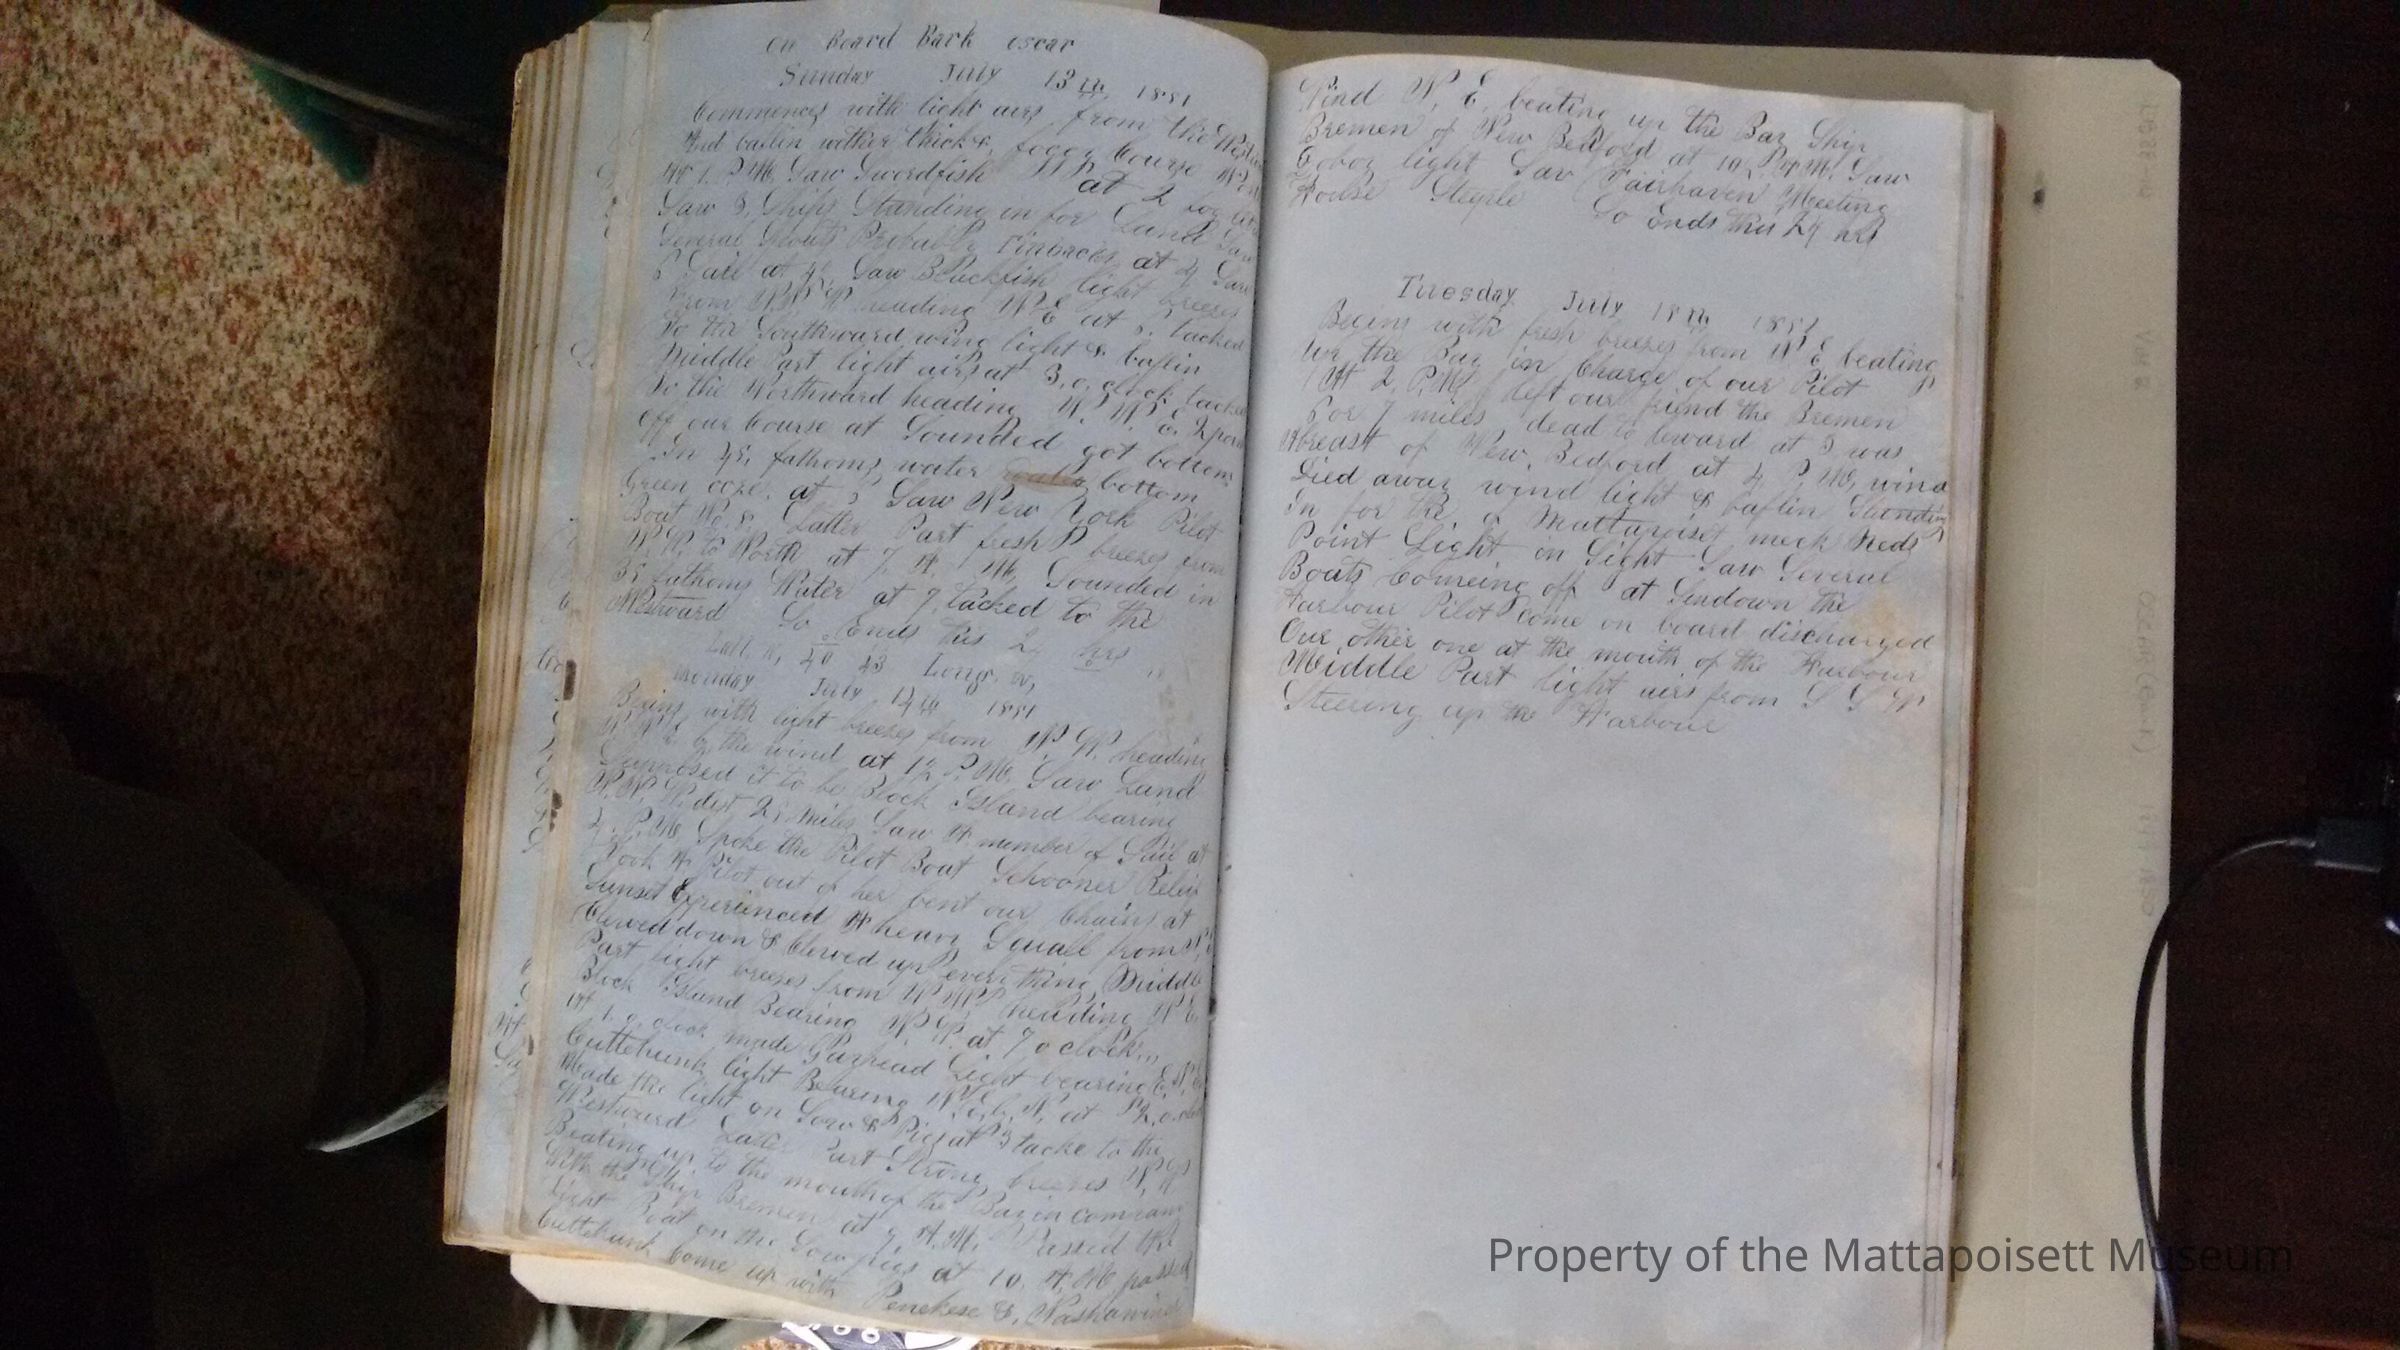 on Board Bark oscar
Sunday July 13th 1851
Commences with light airs from the Westward
And baflin wether thick & foggy Course
At 1. P.M. Saw Swordfish at 2
Saw 3, Ships Standing in for Land Saw
Several Spouts Probably Finbacks at 4 Saw
6 Sail at 4½ Saw Blackfish light breezes
From N.N.W. heading N.E at 5. tacked
To the Southward wing light & baflin
Middle Part light airs at 3, o, clock tacked
To the Northward heading N. N. E. 2
off our Course at Sounded got bottom
In 45, fathoms water bottom
Green ooze. at 5 Saw New York Pilot
Boat No. 8. Latter Part fresh breezes from
N.W. to North at 7, A. M. Sounded in
35 fathoms Water at 7, tacked to the
Westward So Ends this 24 hrs
Latt n, 40 43 Long. w,
Monday July 14th 1851
Begins with light breezes from N. W. heading
the wind at 12 P.M. Saw Land
Supposed it to be Block Island bearing
N. N. W. dist 25 miles Saw A number of Sail at
4. P.M. Spoke the Pilot Boat Schooner Relief
Took A Pilot out of her bent our Chains at
Sunset Experienced A heavy Squall from
Clewed down & Clewed up everything Middle
Part light breezes from heading N. E.
Block Island Bearing N. W. at 7 o clock
At 1. o, clock made Gayhead Light bearing E. N. E.
Cuttehunk light Bearing N. E. b. N. at 2, o. clock
Made the light on Sow & Pigs at 3 tacke to the
Westward Later Part Strong breezes N, W
Beating up to the mouth of the Bay in company
With the Ship Bremen at 9, A.M. Passed the
Light Boat on the Sow pigs at 10. A. M. passed
Cuttehunk Come up with Penekese & Nashawina
Wind N. E. beating up the Bay Ship
Bremen of New Bedford at 10, Saw
Goboy light Sav Fairhaven Meeting
House Steeple So Ends this 24 hrs
Tuesday July 15th 1851
Begins with fresh breezes from N E beating
up the Bay in Charge of our Pilot
At 2, P.M. left our friend the Bremen
For 7 miles dead to leward at 3 was
Abreast of New, Bedford at 4 P, M, wind
Died away wind light & baflin Standing
In for the Mattapoiset neck Neds
Point Light in Sight Saw Several
Boats Comeing off at Sundown the
Harbour Pilot come on board discharged
Our other one at the mouth of the Harbour
Middle Part light airs from S S W
Steering up the Harbour
Property of the Mattapoisett Museum